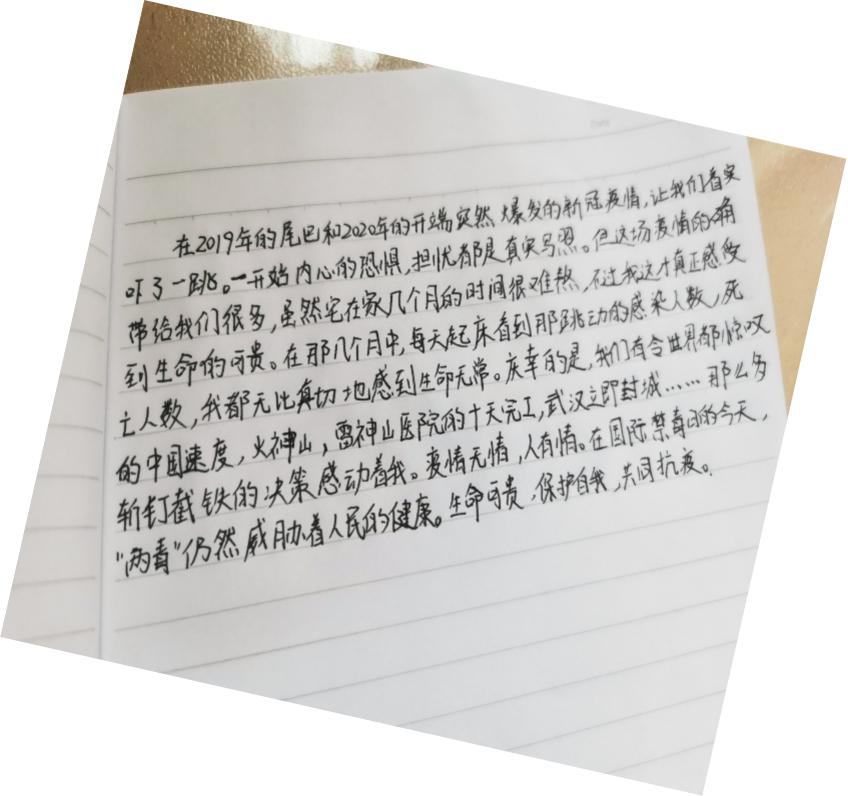 在2019年的尾巴和2020年的开端突然爆发的新冠疫情,让我们着实
吓了一跳。一开始内心的恐惧,担忧都是真实写照。但这场疫情的确
带给我们很多,虽然宅在家几个月的时间很难熬,不过我这才真正感受
到生命的可贵。在那几个月中,每天起床看到那跳动的感染人数,死
亡人数,我都无比真切地感到生命无常。庆幸的是,我们有令世界都惊叹
的中国速度,火神山,雷神山医院的十天完工,武汉立即封城……那么多
斩钉截铁的决策感动着我。疫情无情,人有情。在国际禁毒日的今天,
“两毒”仍然威胁着人民的健康。生命可贵,保护自我,共同抗疫。